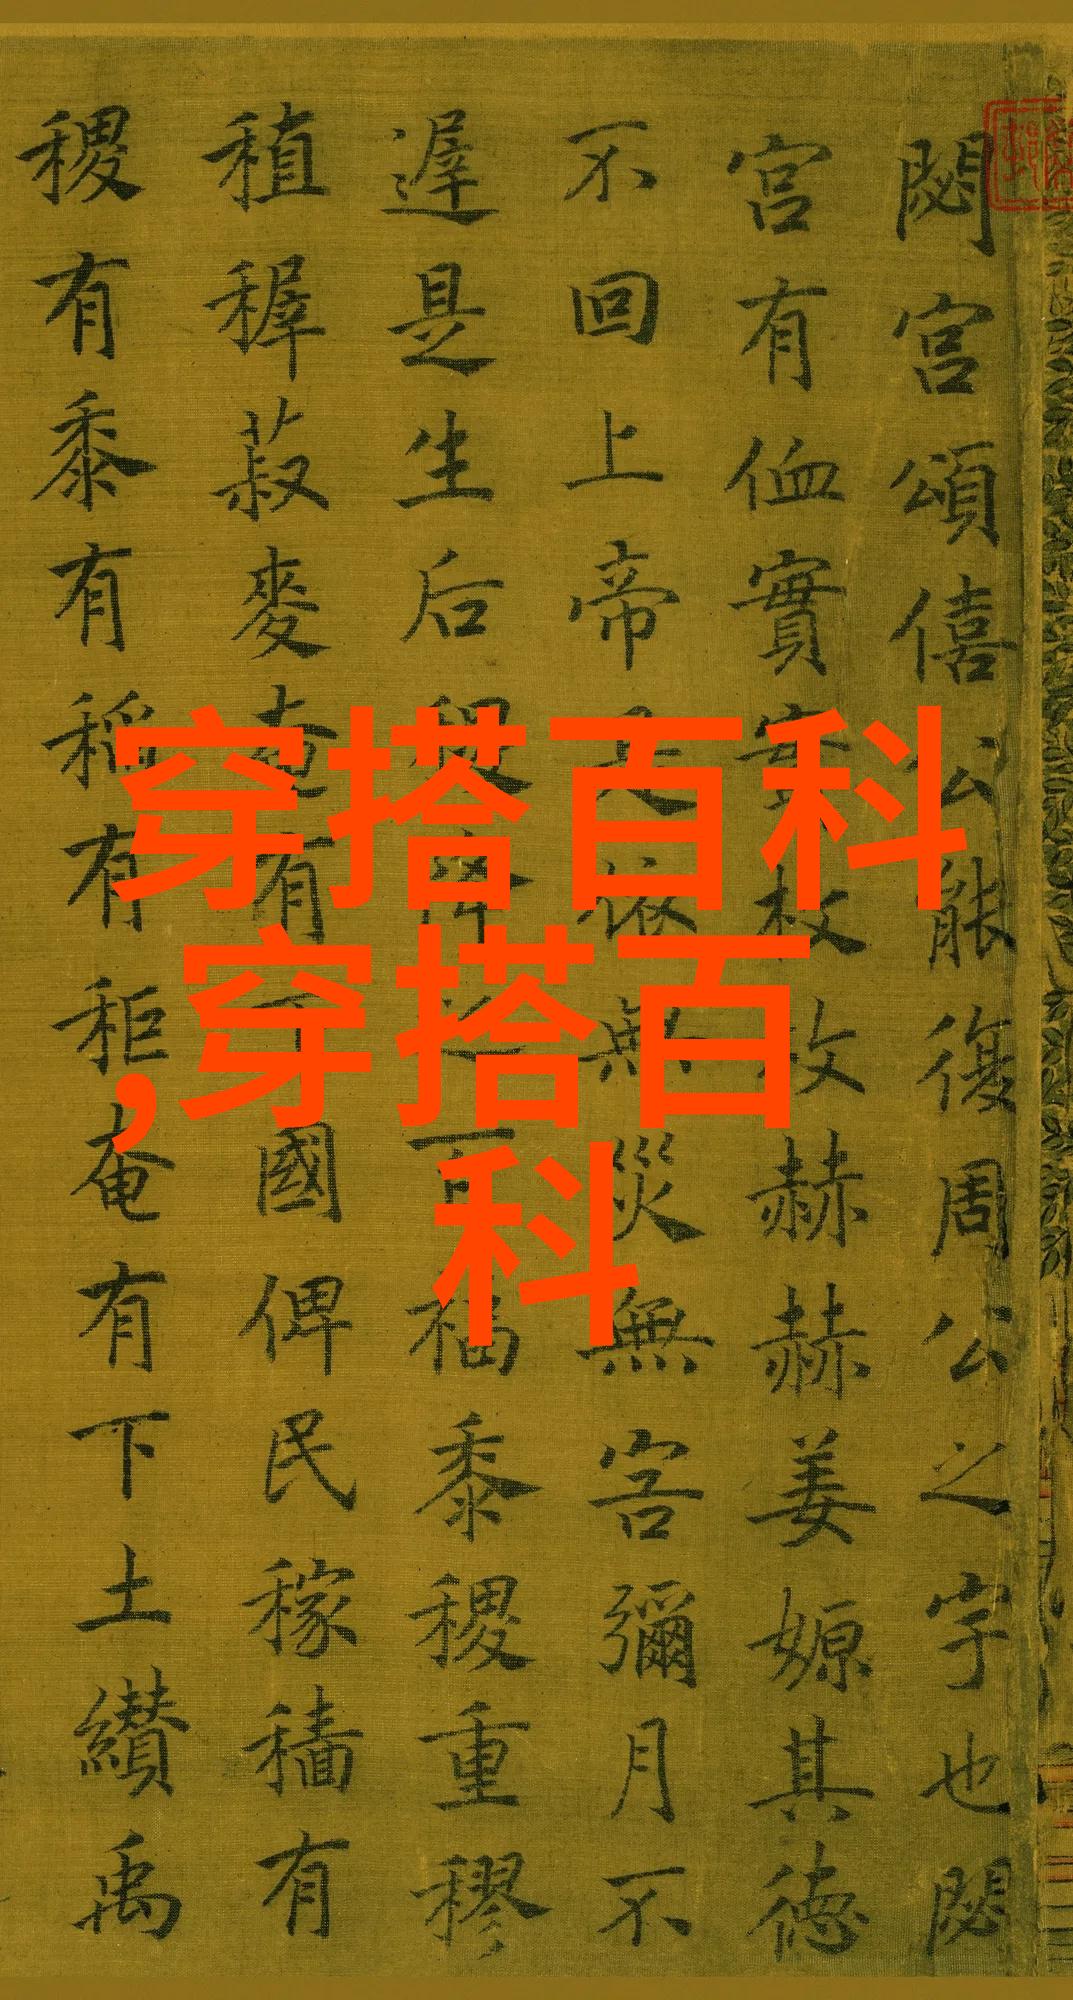 閟宮頌僖公能復周公之宇也閟
宮有侐實實枚枚赫赫姜嫄其德
不回上帝是依無災無害彌月不
遲是生后稷降之百福黍稷重穋
稙穉菽麥奄有下國俾民稼穡有
稷有黍有稻有秬奄有下土纘禹
穿搭百科
,穿搭百
科